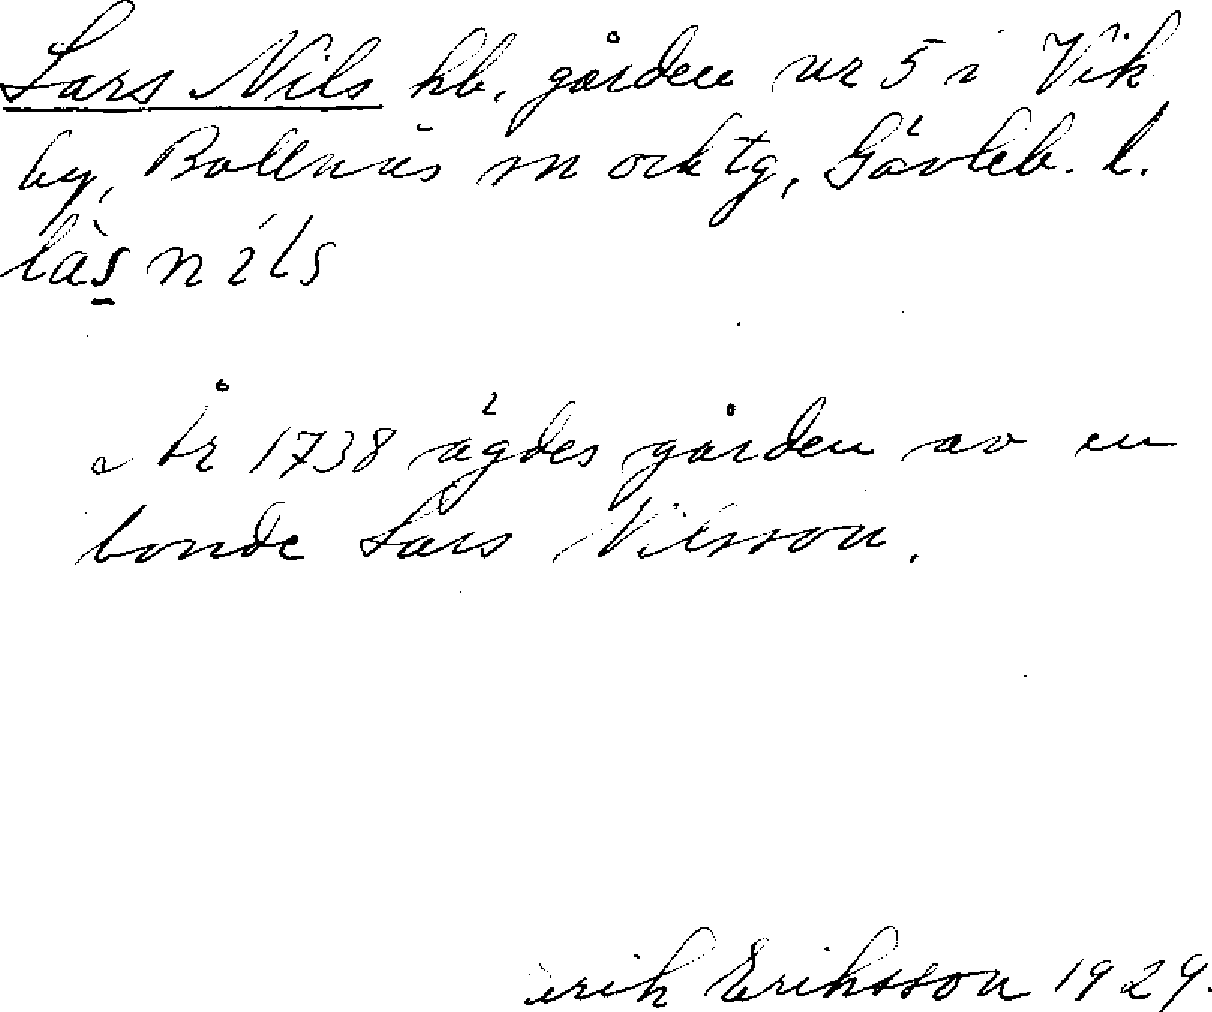 Lars Nils hb. gården nr 5 i Vik
by, Bollnäs sn och tg, Gävleb. l.
làs nils
År 1738 ägdes gården av en
bonde Lars Nilsson.
Erik Eriksson 1929.